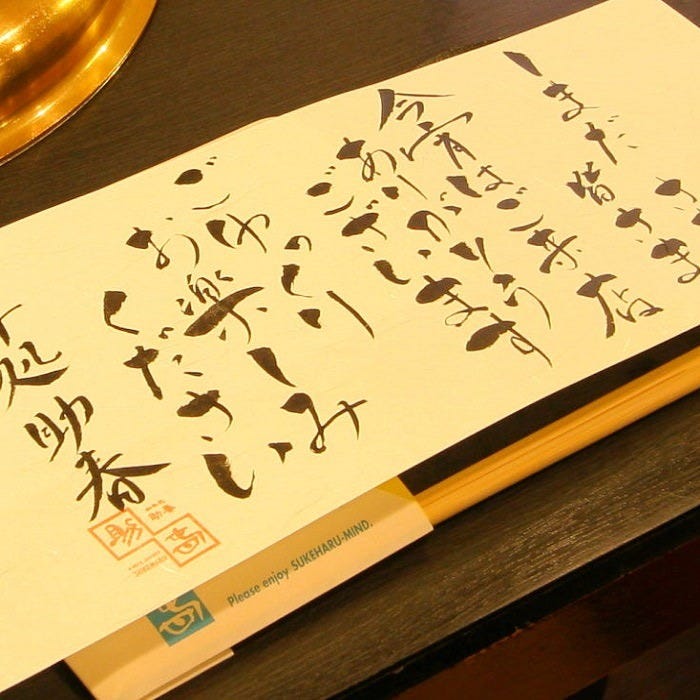 しまだ
皆さま
今宵はご来店
ありがとう
ございます
ごゆっくり
お楽しみ
ください
助春
助春
Please enjoy SUKEHARU-MIND.